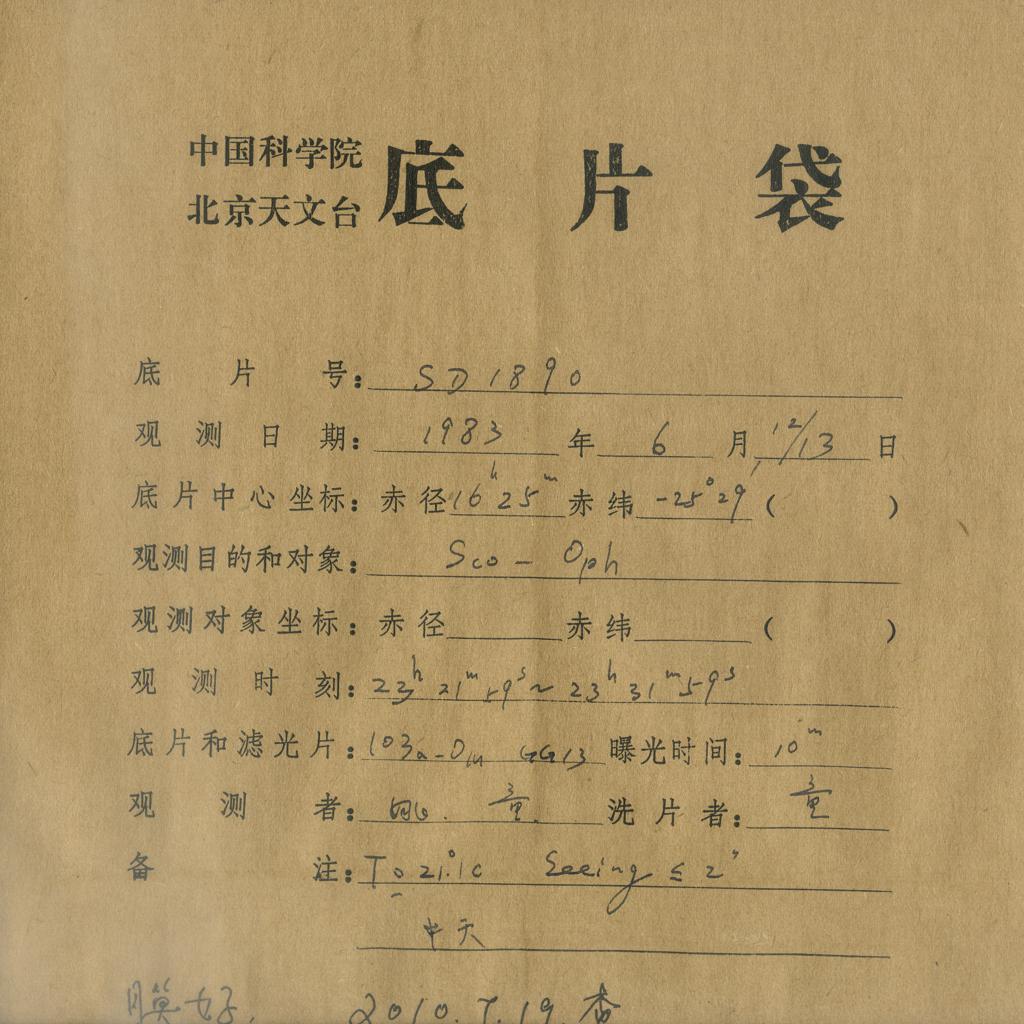 中国科学院
北京天文台
底片袋
底片号：SD1890
观测日期：1983年6月12/13日
底片中心坐标：赤径16h25m赤纬-25°29′( )
观测目的和对象：Sco - Oph
观测对象坐标：赤径 赤纬 ( )
观测时刻：23h21m59s~23h31m59s
底片和滤光片：103a-O GG13 曝光时间：10m
观测者：童 洗片者：童
备注：T = 21.°1C Seeing ≤ 2"
中天
膜好. 2010.7.19.